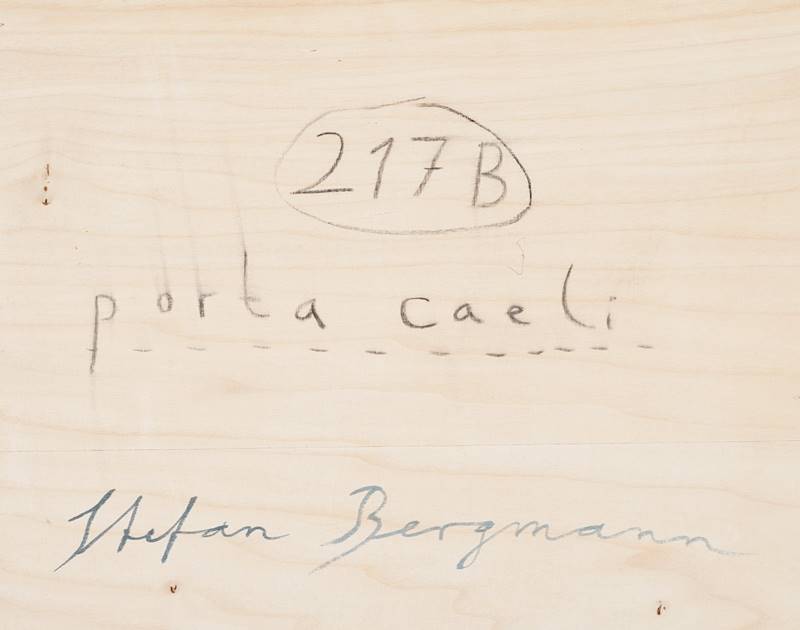 217B
porta caeli
Stefan Bergmann